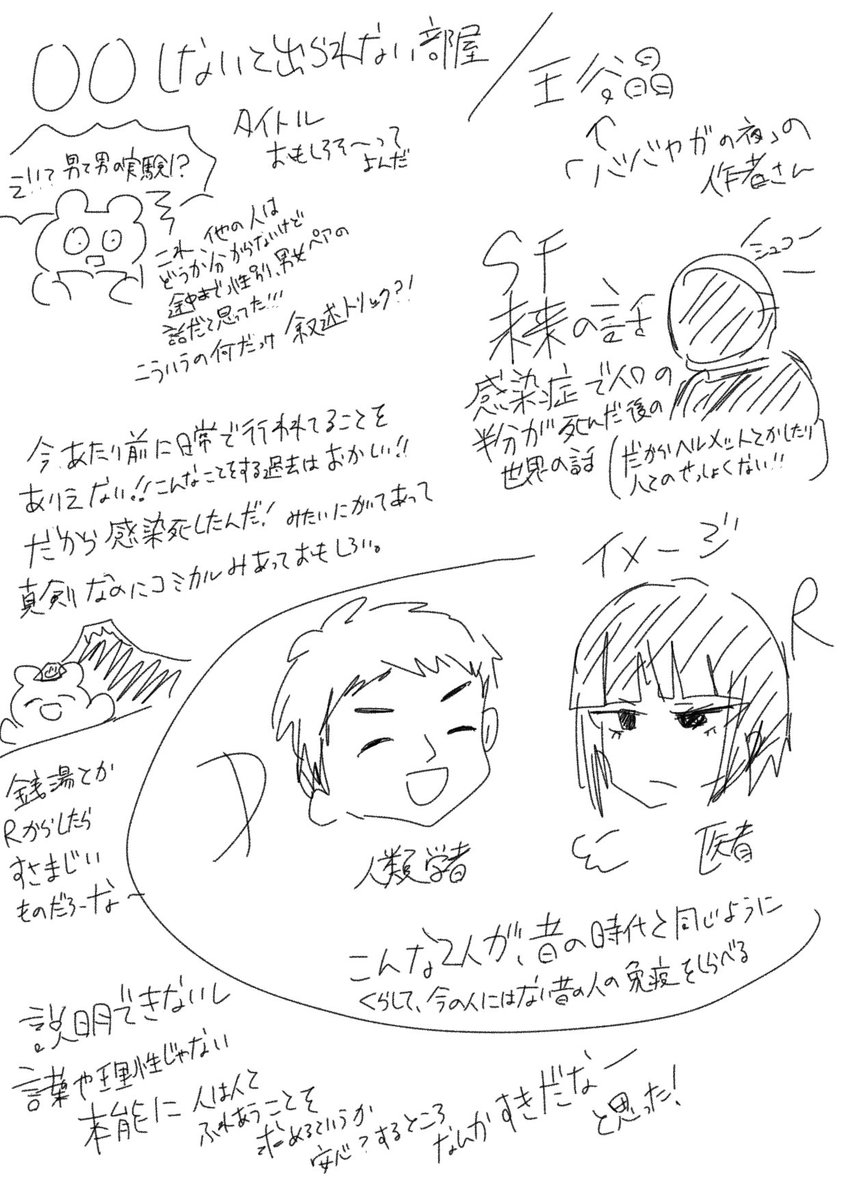 〇〇しないと出られない部屋/王谷晶
↑
「ババヤガの夜」の
作者さん
タイトル
おもしろそ〜って
よんだ
えいて男と男の実験!?
これ、他の人は
どうか分からないけど
途中まで、性別、男女ペアの
話だと思ってた!!!
こういうの何だっけ 叙述トリック?!
SF
未来の話
感染症で人口の
半分が死んだ後の
世界の話
(だからヘルメットとかしたり
人とのせっしょくない!!)
シュコー
今、あたり前に日常で行われてることを
ありえない!!こんなことをする過去はおかしい!!
だから感染死したんだ!みたいにかいてあって
真剣なのにコミカルみあっておもしろい。
イメージ
R
人類学者
医者
こんな2人が、昔の時代と同じように
くらして、今の人にはない昔の人の免疫をしらべる
銭湯とか
Rからしたら
すさまじい
ものだろーなー
説明できないし
言葉や理性じゃない
本能に人は人と
ふれあうことを
求めるというか
安心?するところ
なんかすきだなー
と思った!